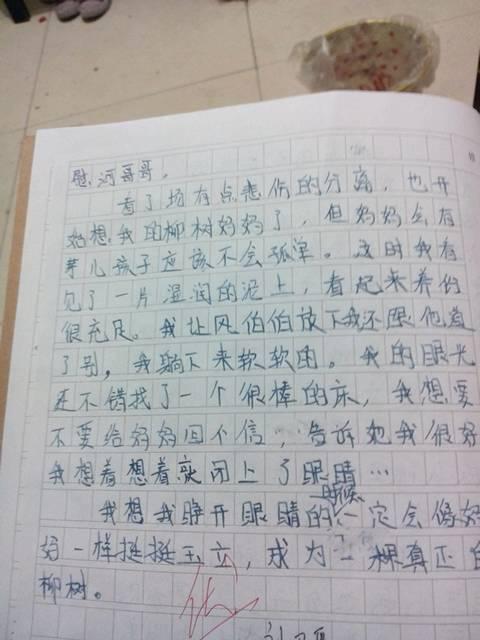 慰河哥哥。
看了场有点悲伤的分离,也开
始想我的柳树妈妈了,但妈妈会有
芽儿孩子应该不会孤单。这时我看
见了一片湿润的泥土,看起来养份
很充足。我让风伯伯放下我还跟他道
了别,我躺下来软软的。我的眼光
还不错找了一个很棒的床,我想要
不要给妈妈回个信,告诉她我很好
我想着想着就闭上了眼睛…
我想我睁开眼睛的时候一定会像妈
妈一样挺挺玉立,成为一棵真正的
柳树。